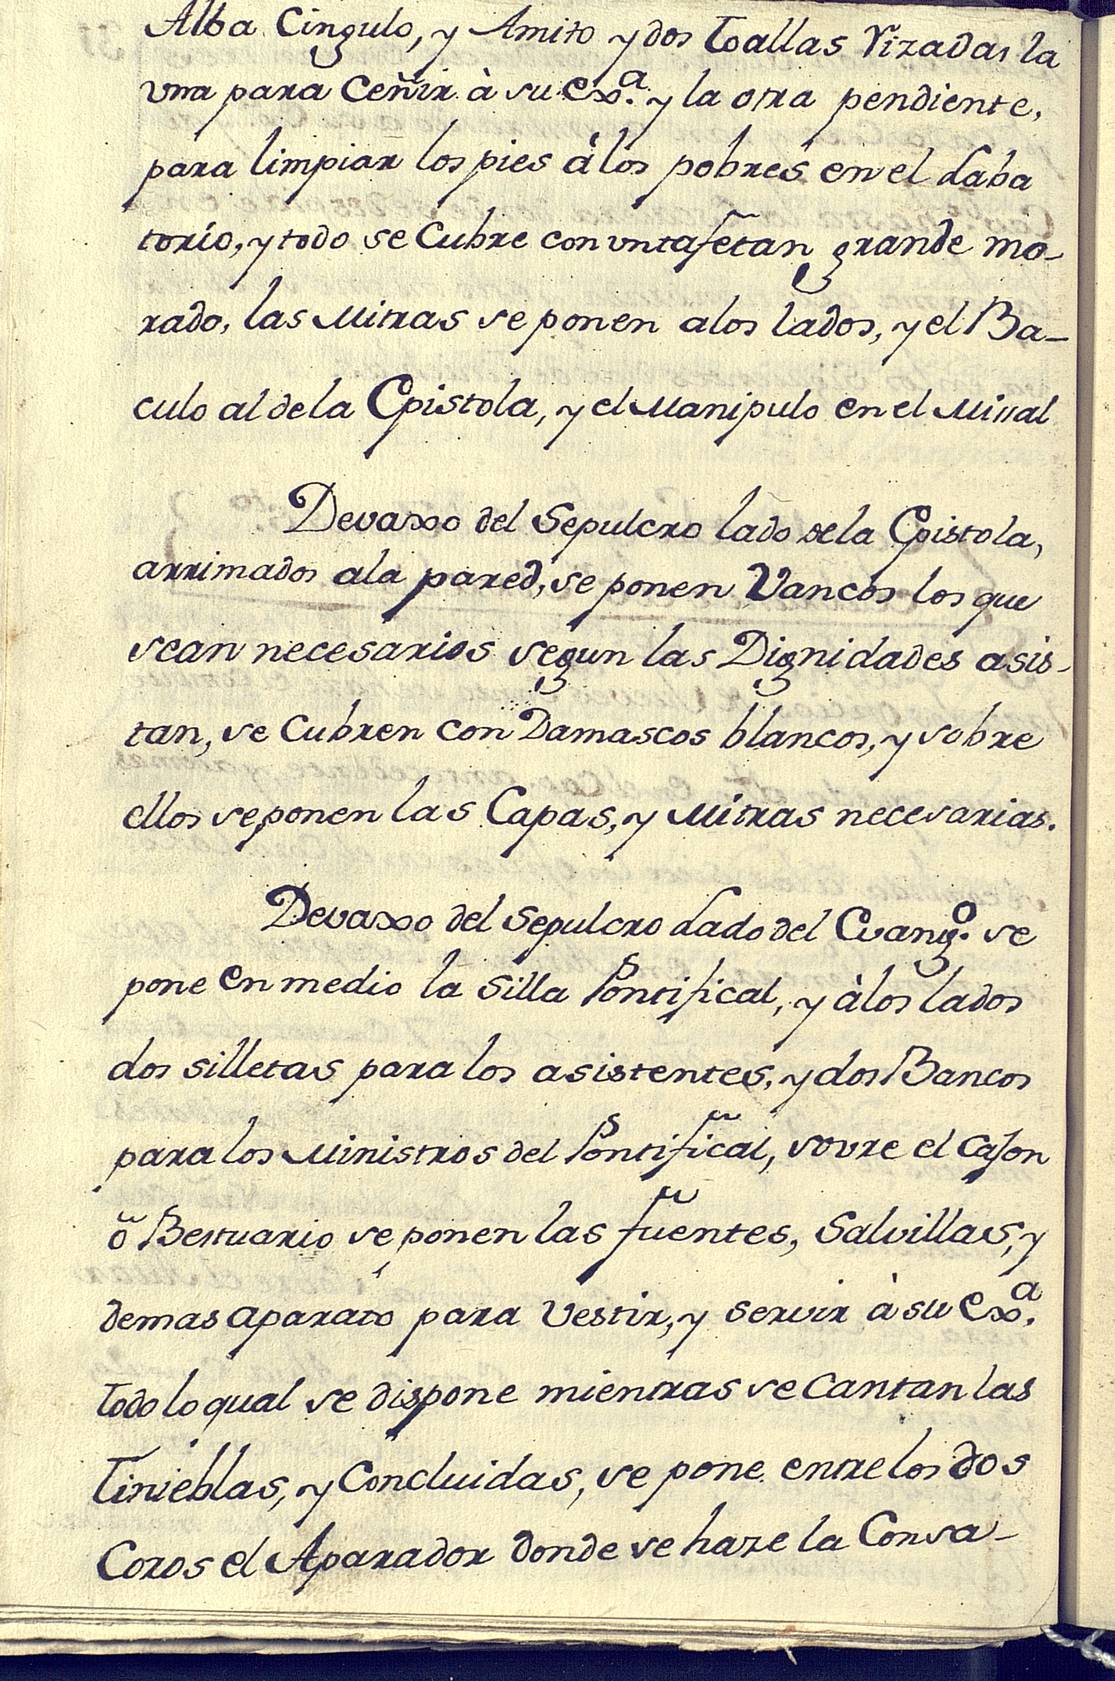 Alba Cingulo, y Amito y dos toallas rizadas la
una para Ceñir à su Exª. y la otra pendiente,
para limpiar los pies à los pobres en el Laba
torio, y todo se Cubre con un tafetan grande mo-
rado, las Mitras se ponen a los lados, y el Ba-
culo al de la Epistola, y el Manipulo en el Missal
Devaxo del Sepulcro lado de la Epistola,
arrimados ala pared, se ponen Vancos los que
sean necesarios segun las Dignidades asis-
tan, se Cubren con Damascos blancos, y sobre
ellos se ponen las Capas, y Mitras necesarias.
Devaxo del Sepulcro Lado del Evangº. se
pone en medio la Silla Pontifical, y à los lados
dos silletas para los asistentes, y dos Bancos
para los Ministros del Pontifical, sovre el Cajon
ò Bestuario se ponen las fuentes, Salvillas, y
demas aparato para Vestir, y servir à su Exª.
todo lo qual se dispone mientras se Cantan las
Tinieblas, y Concluidas, se pone entre los dos
Coros el Aparador donde se haze la Consa-